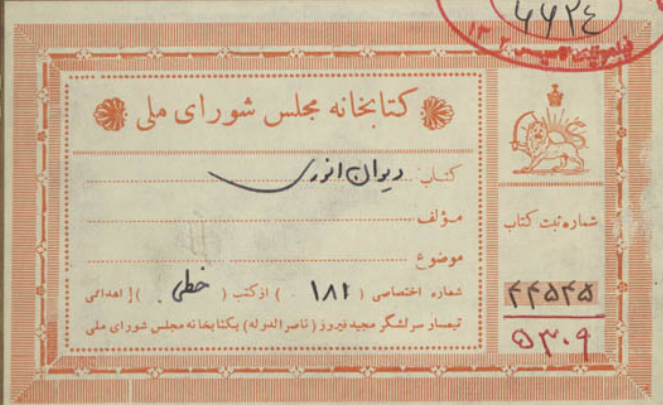 ۴۶۲۴
کتابخانه مجلس شورای ملی
کتاب دیوان انوری
مؤلف
موضوع
شماره اختصاصی ( ۱۸۱ ) از کتب ( خطی ) اهدائی
تیمسار سرلشگر مجید فیروز ( ناصرالدوله ) بکتابخانه مجلس شورای ملی
شماره ثبت کتاب
۴۴۵۴۵
۵۳۰۹